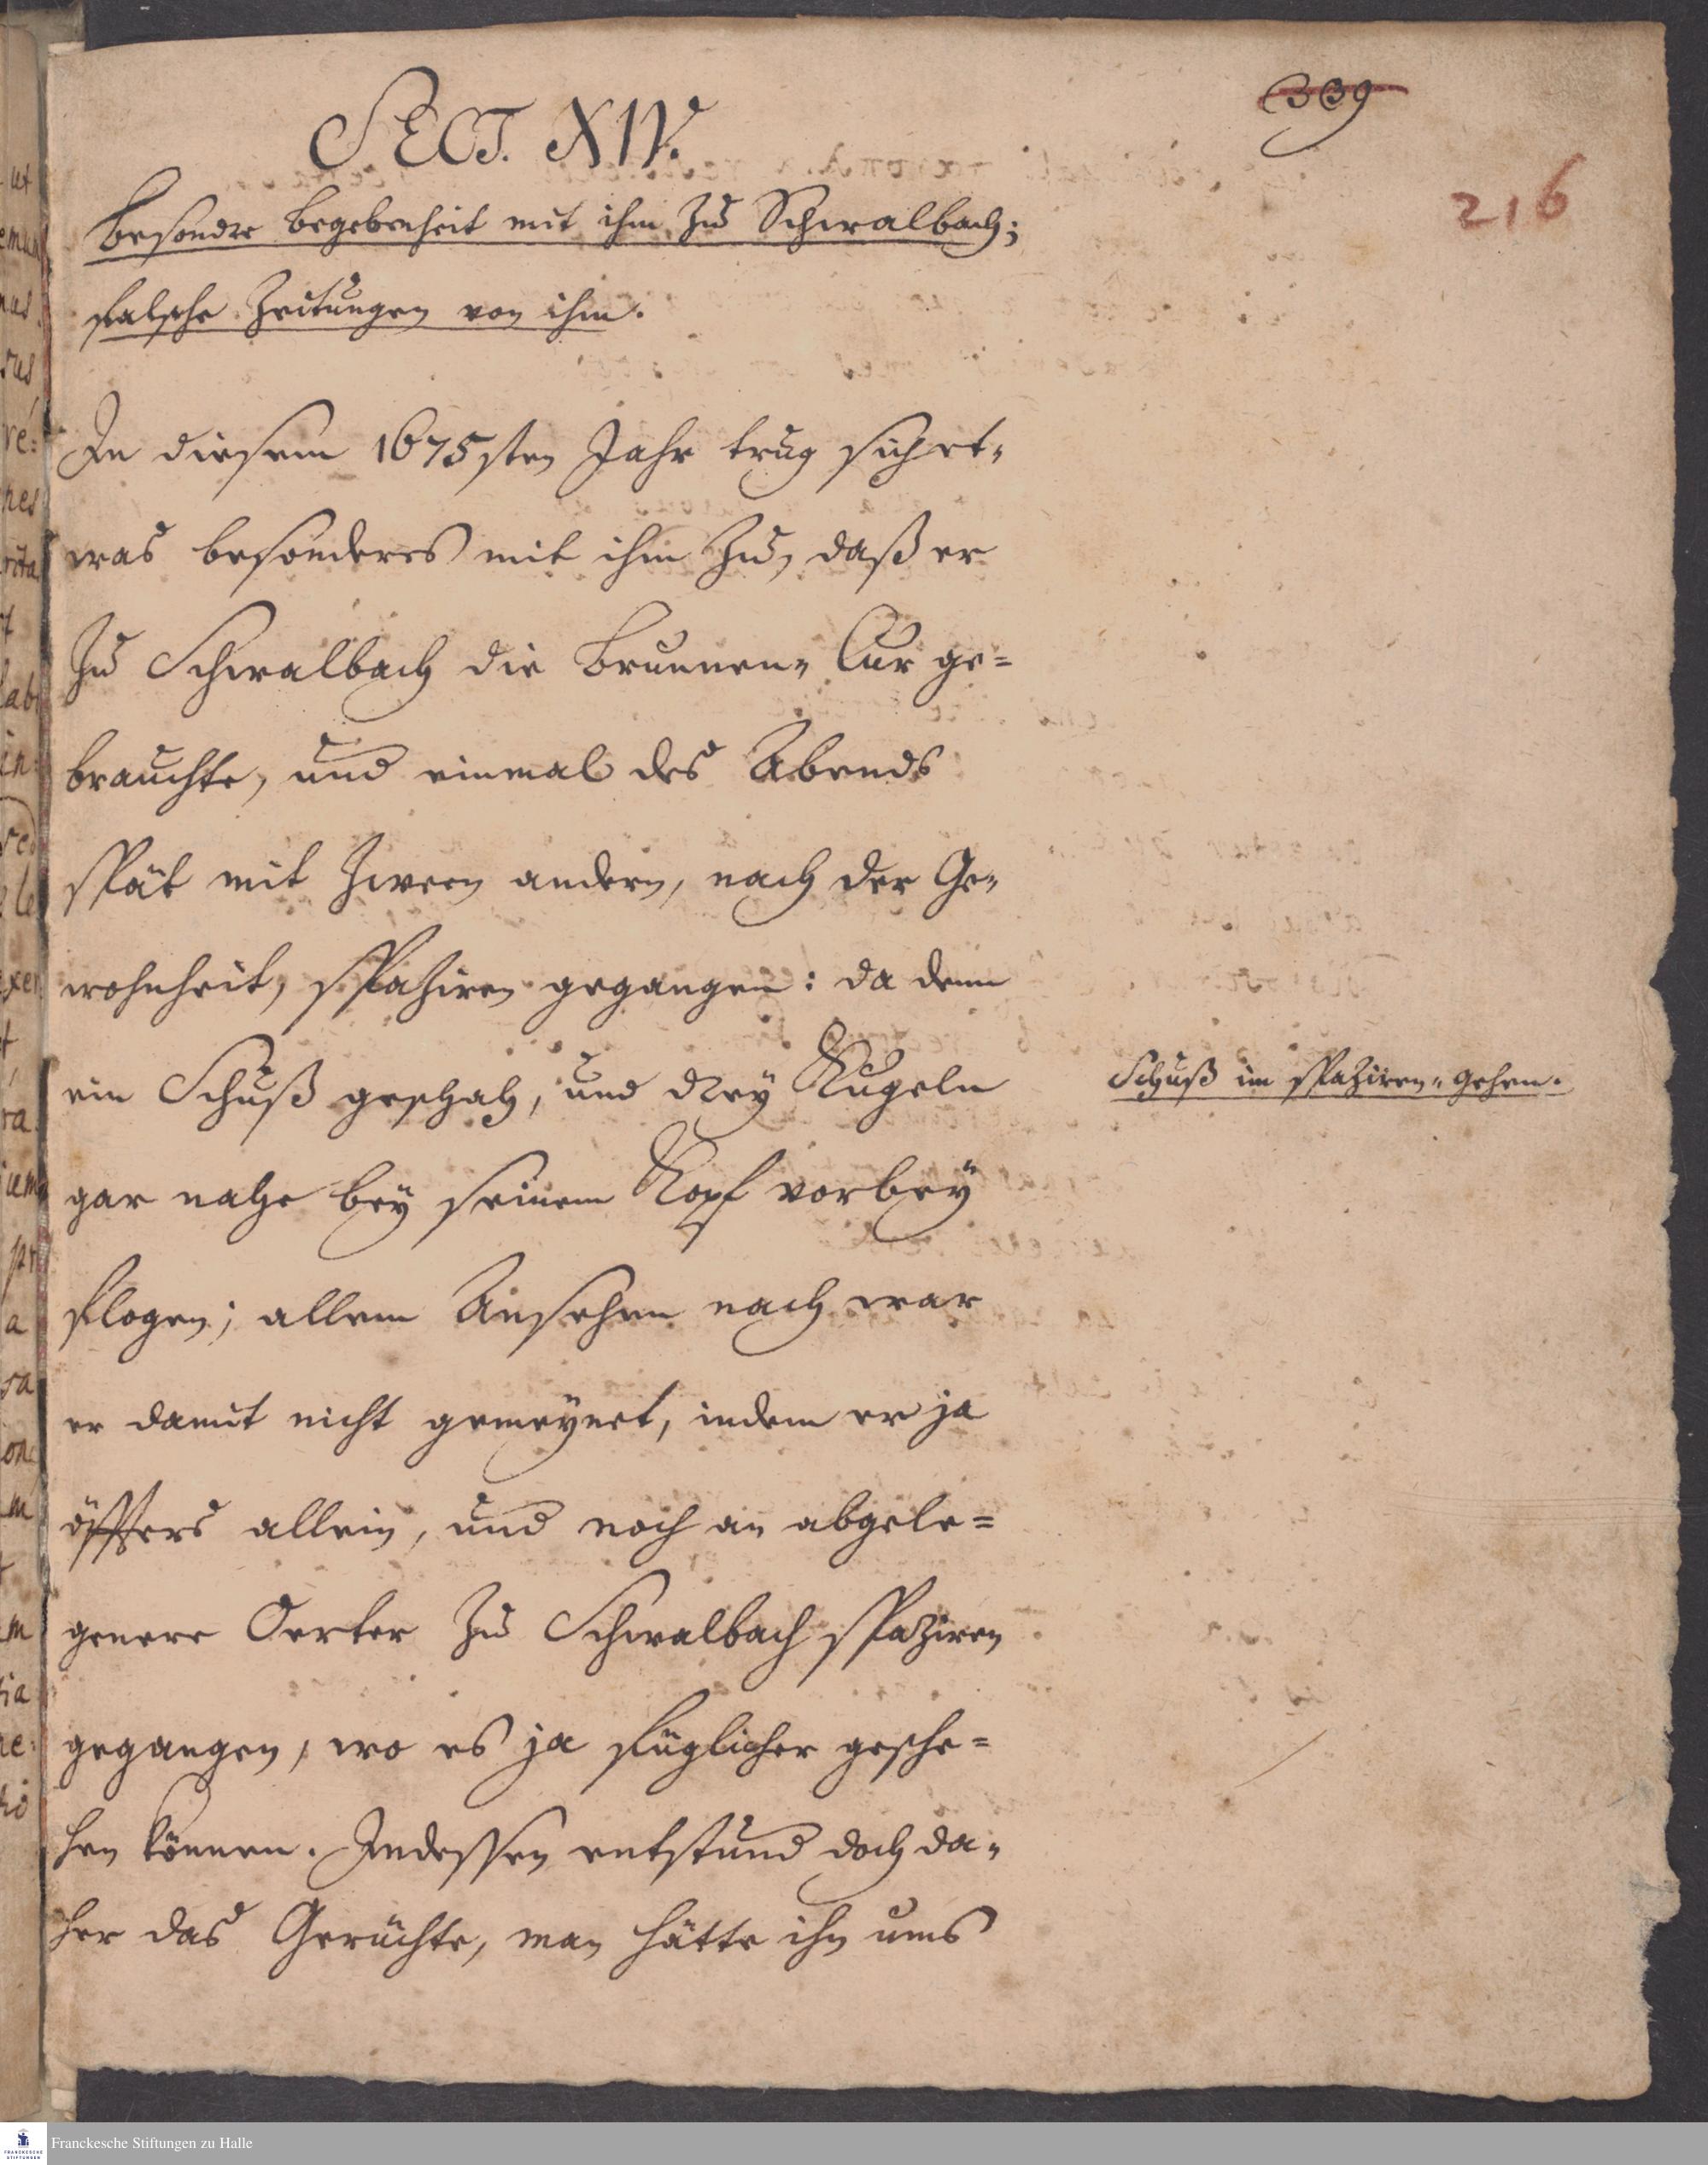 339
216
SECT. XIV.
Besondre Begebenheit mit ihm zu Schwalbach;
falsche Zeitungen von ihm.
In diesem 1675sten Jahr trug sich et-
was besonderes mit ihm zu, daß er
zu Schwalbach die Brunnen-Cur ge=
brauchte, und einmal des Abends
spät mit zween andern, nach der Ge-
wohnheit, spaziren gegangen: da denn
ein Schuß geschah, und drey Kugeln
Schuß im spaziren-gehen.
gar nahe bey seinem Kopf vorbey
flogen; allem Ansehen nach war
er damit nicht gemeynet, indem er ja
öffters allein, und noch an abgele=
genere Oerter zu Schwalbach spaziren
gegangen, wo es ja füglicher gesche=
hen können. Indessen entstund doch da-
her das Gerüchte, man hätte ihn ums
Franckesche Stiftungen zu Halle